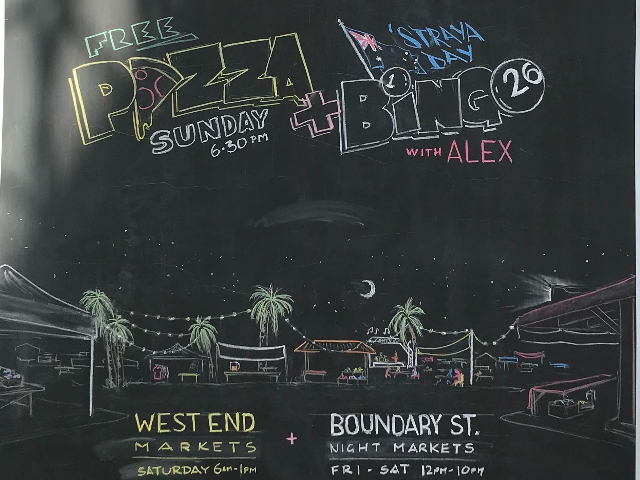 FREE
PIZZA
SUNDAY
6·30PM
+
'STRAYA
DAY
BiNGO
1
26
WITH ALEX
WEST END
MARKETS
SATURDAY 6AM-1PM
+
BOUNDARY ST.
NIGHT MARKETS
FRI - SAT 12PM-10PM